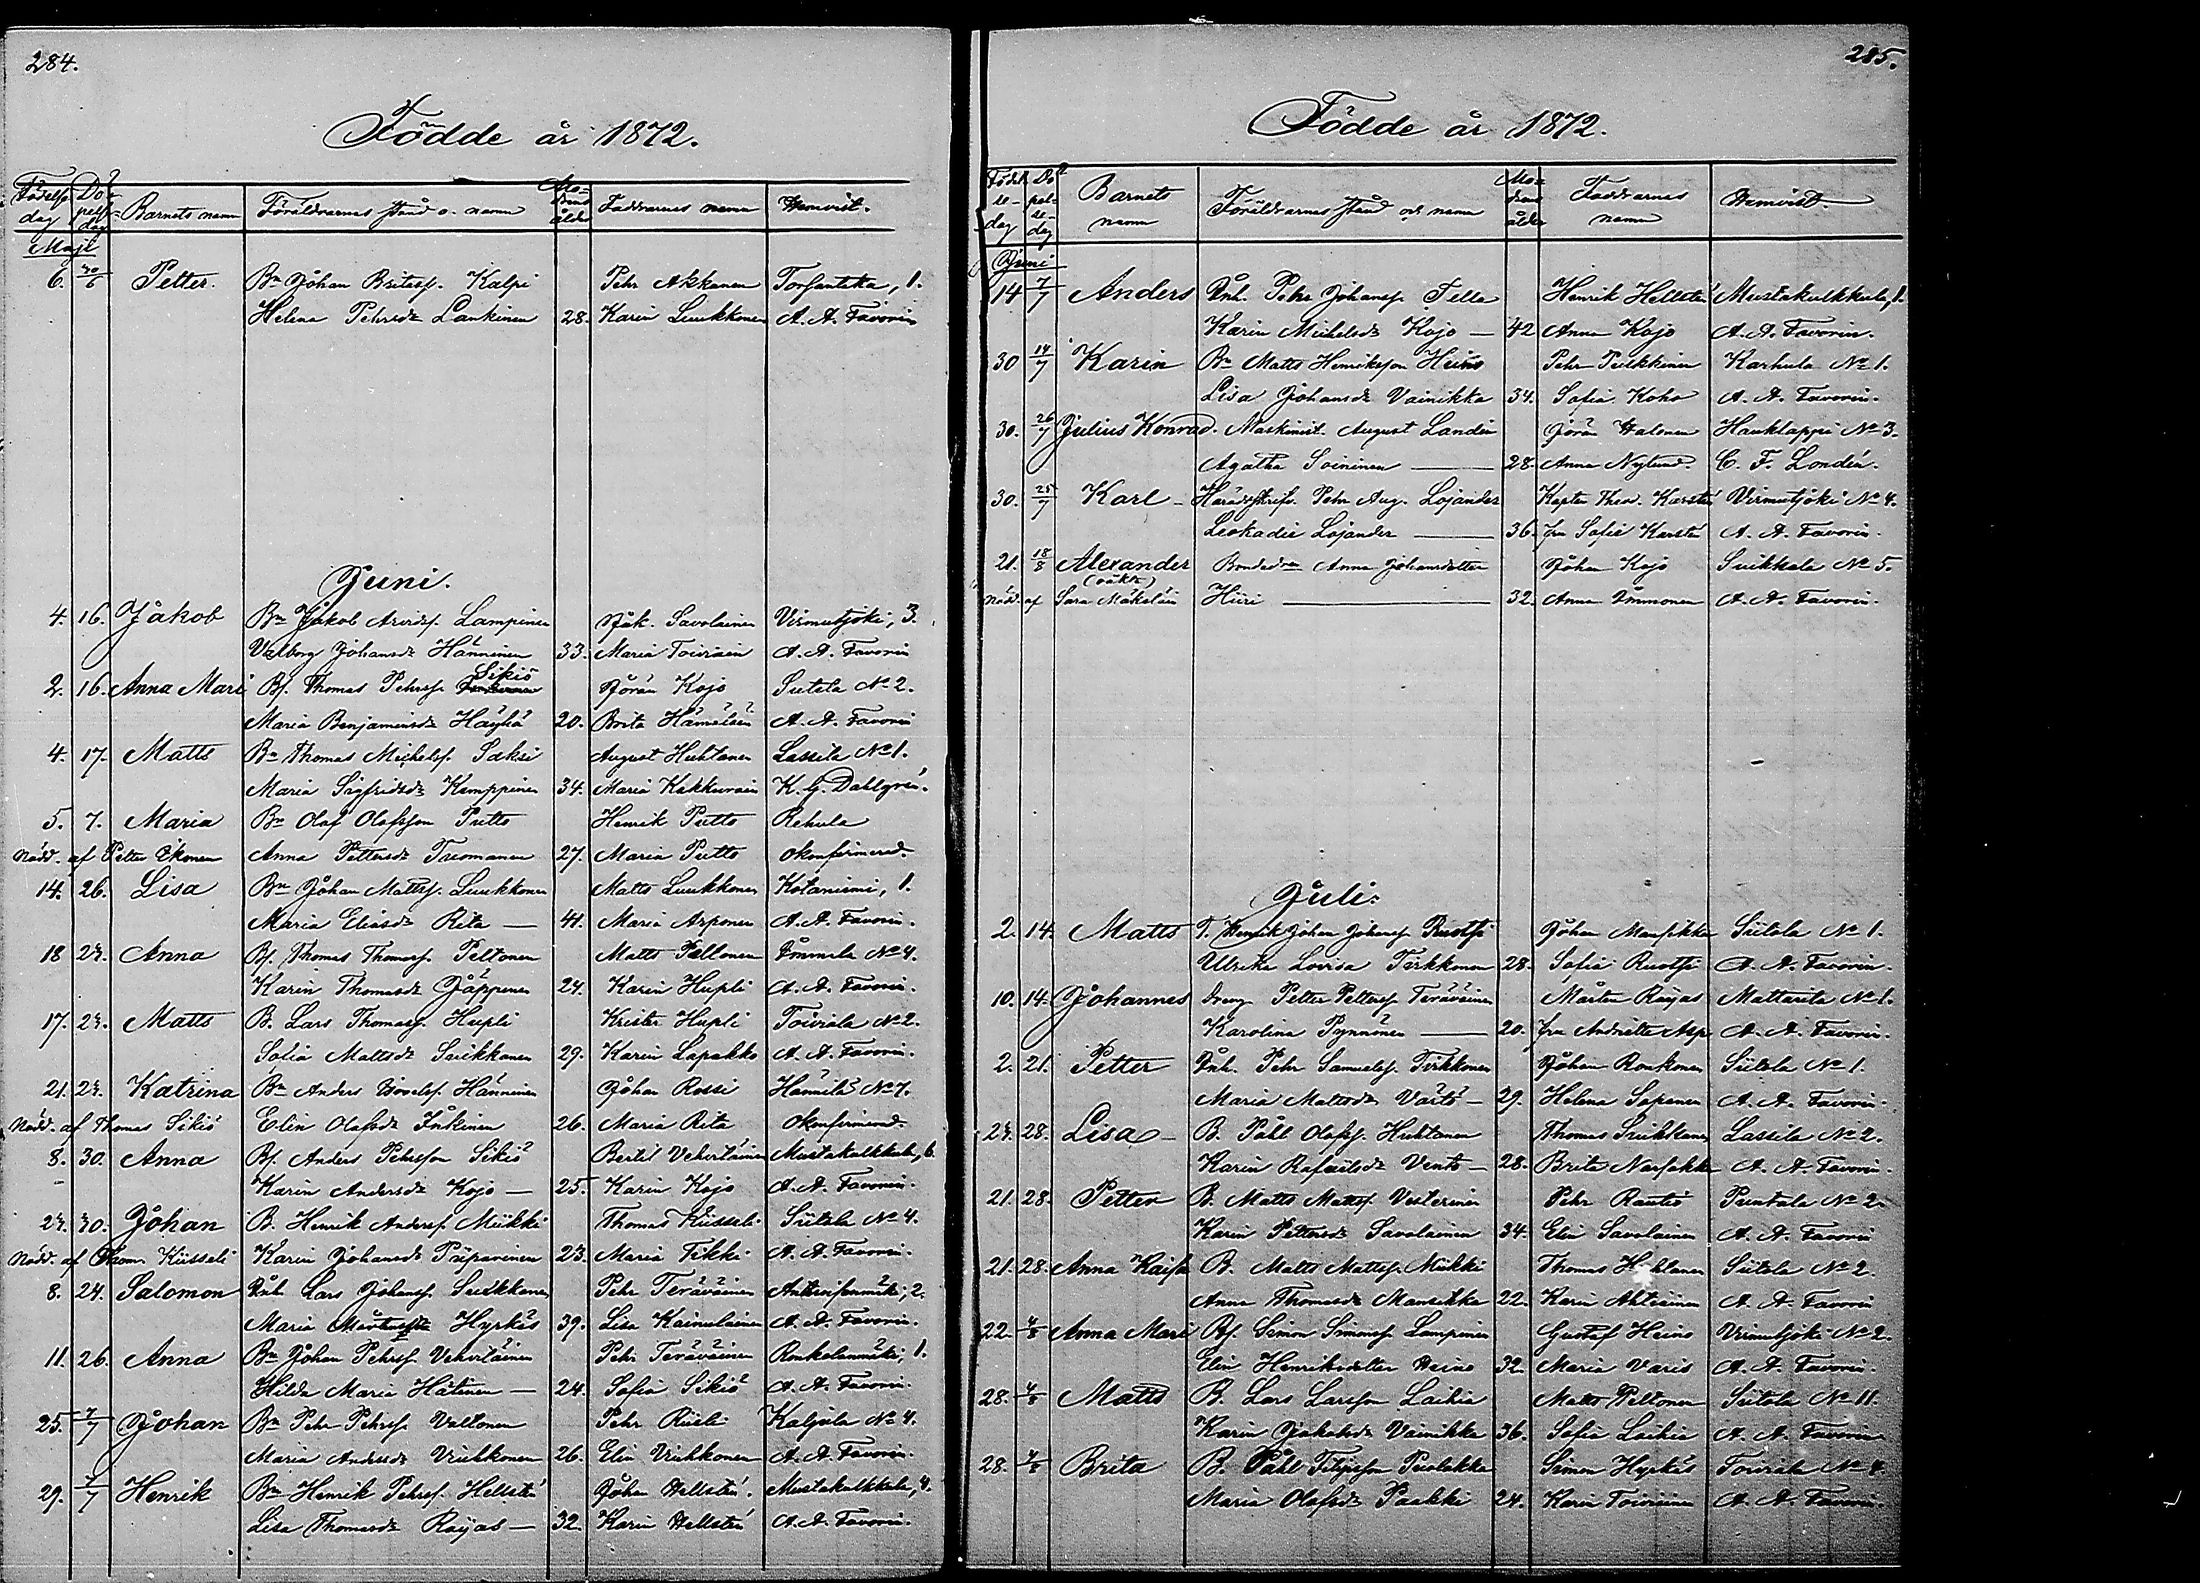 284.
Födde år 1872.
Födelse dag Dopelse dag Barnets namn Föräldrarnas stånd o. namn Modrens ålder Faddrarnes namn Hemvist.
Maji
6. 30/6 Petter. Bn Johan Pehrsf. Kalpi Pehr Akkanen Torsantaka, 1.
Helena Pehrsdr Lankinen 28. Karin Luukkonen A. A. Favorin
Juni.
4. 16. Jakob Bn Jakob Arvidsf. Lampinen Jak. Savolainen Virmutjoki, 3.
Valborg Johansdr Hänninen 33. Maria Toiviain A. A. Favorin
2. 16. Anna Mari Bf. Thomas Pehrsf. Sikiö Jöran Kojo Sutela No 2.
Maria Benjaminsdr Häyhä 20. Brita Hämäläin A. A. Favorin
4. 17. Matts Bn Thomas Michelsf. Saksi August Huhtanen Lassila No 1.
Maria Sigfridsdr Kamppinen 34. Maria Kakkurain K. G. Dahlgren.
5. 7. Maria Bn Olof Olofsson Putto Henrik Putto Rehula
Nödd. af Petter Ikonen Anna Pettersdr Tuomanen 27. Maria Putto okonfirmerad.
14. 26. Lisa Bn Johan Mattsf. Luukkonen Matts Luukkonen Kotaniemi, 1.
Maria Eliasdr Rita — 41. Maria Asponen A. A. Favorin.
18 23. Anna Bf. Thomas Thomasf. Peltonen Matts Peltonen Immala No 4.
Karin Thomasdr Jäppinen 24. Karin Hupli A. A. Favorin.
17. 23. Matts B. Lars Thomasf. Hupli Krister Hupli Toiviala No 2.
Sofia Mattsdr Suikkanen 29. Karin Lapakko A. A. Favorin.
21. 23. Katrina Bn Anders Hänninen Johan Rossi Hämälä No 7.
Nödd. af Thomas Sikiö Elin Olofsdr Inkinen 26. Maria Rita okonfirmerad.
8. 30. Anna Bf. Anders Pehrsson Sikiö Bertil Vehviläinen Mustakulkkula, 6.
Karin Andersdr Kojo — 25. Karin Kojo A. A. Favorin.
23. 30. Johan B. Henrik Andersf. Miikki Thomas Kiisseli Siitola No 4.
Nödd. af Thom. Kiisseli Karin Johansdr Pöparinen 23. Maria Tikki A. A. Favorin.
8. 24. Salomon Inh. Lars Johansf. Suikkanen Pehr Teräväinen 2.
Maria Hyrkäs 39. Lisa Kainulainen A. A. Favorin.
11. 26. Anna Bn Johan Pehrsf. Vehviläinen Pehr Teräväinen Ronkolanmäki, 1.
Hilda Maria Hätinen — 24. Sofia Sikiö A. A. Favorin.
25. 7/7 Johan Bn Pehr Pehrsf. Valtonen Pehr Rusi Kaljola No 4.
Maria Andersdr Viuhkonen 26. Elin Viuhkonen A. A. Favorin.
29. 7/7 Henrik Bn Henrik Pehrsf. Hellstén Johan Hellstén. Mustakulkkula, 4.
Lisa Thomasdr Raijas — 32. Karin Hellstén A. A. Favorin.
285.
Födde år 1872.
Födelsedag Dopelsedag Barnets namn Föräldrarnas stånd och namn Modrens ålder Faddrarnes namn Hemvist.
Juni
14 7/7 Anders Inh. Pehr Johansf. Tella Henrik Hellstén Mustakulkkula, 1.
Karin Michelsdr Kojo — 42 Anna Kojo A. A. Favorin.
30 14/7 Karin Bn Matts Henriksson Heino Pehr Pulkkinen Karhula No 1.
Lisa Johansdr Vainikka 34. Sofia Koho A. A. Favorin.
30. 26/7 Julius Konrad. Maskinist. August Landén Göran Halonen Hauklappi No 3.
Agatha Soininen — 28. Anna Nylund. C. F. Londén.
30. 25/7 Karl — Häradsskrifv. Pehr Aug. Lojander Kapten Theod. Karstén Virmutjoki No 4.
Leokadie Lojander — 36. fru Sofie Karstén A. A. Favorin.
21. 18/8 Alexander Bondedn Anna Johansdotter Johan Kojo Suikkala No 5.
(oäkta)
Nödd. af Sara Mäkeläin Hiiri — 32. Anna Immonen A. A. Favorin.
Juli.
2. 14. Matts T. Henrik Johan Johansf. Ruotsi Johan Mansikka Siitola No 1.
Ulrika Lovisa Tirkkonen 28. Sofia Ruotsi A. A. Favorin.
10. 14. Johannes dreng Petter Pettersf. Teräväinen Mårten Raijas Mattarila No 1.
Karolina Pynnönen — 20. fru Andriette Asp A. A. Favorin.
2. 21. Petter Inh. Pehr Samuelsf. Tirkkonen Johan Ronkonen Siitola No 1.
Maria Mattsdr Värtö — 29. Helena Sapanen A. A. Favorin.
23. 28. Lisa — B. Påhl Olofsf. Huhtanen Thomas Suikkanen Lassila No 2.
Karin Rafaelsdr Vento — 28. Brita Narsakka A. A. Favorin.
21. 28. Petter B. Matts Mattsf. Vesterinen Pehr Rautio Puntala No 2.
Karin Pettersdr Savolainen 34. Elin Savolainen A. A. Favorin
21. 28. Anna Kaisa B. Matts Mattsf. Miikki Thomas Huhtanen Siitola No 2.
Anna Thomasdr Mansikka 22. Karin Ahtiainen A. A. Favorin
22. 4/8 Anna Mari Bf. Simon Simonsf. Lampinen Gustaf Heino Virmutjoki No 2.
Elin Henriksdotter Heino 32. Maria Varis A. A. Favorin.
28. 4/8 Matts B. Lars Larsson Laihia Matts Peltonen Siitola No 11.
Karin Jakobsdr Vainikka 36. Sofia Laihia A. A. Favorin
28. 4/8 Brita B. Påhl Filipsson Puolakka Simon Hyrkäs Toiviala No 4.
Maria Olofsdr Paakki 24. Karin Toiviainen A. A. Favorin.